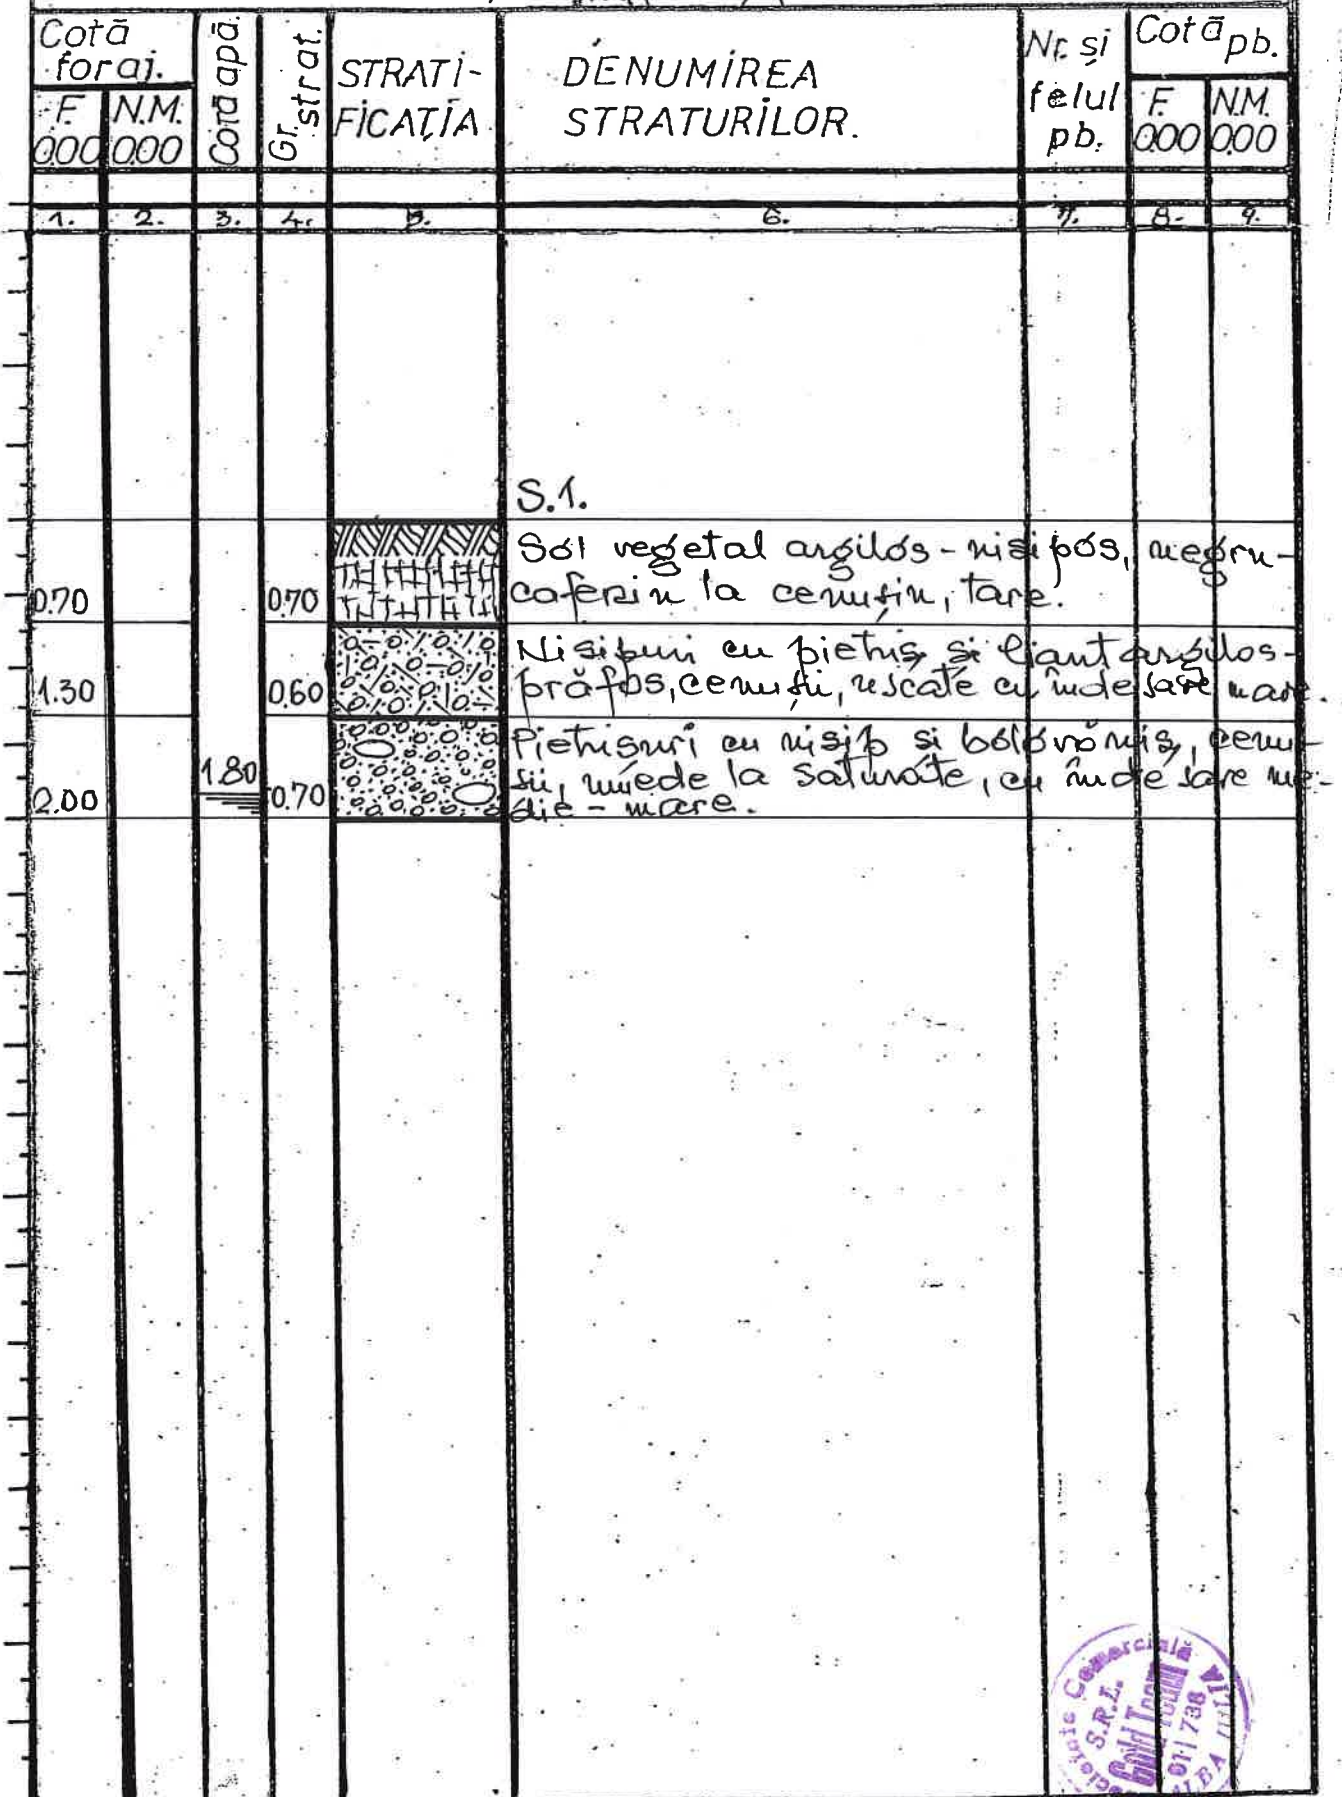 Cotă foraj.
F. 0.00
N.M. 0.00
Cotă apă.
Gr. strat.
STRATI-
FICAȚIA
DENUMIREA
STRATURILOR.
Nr. și
felul
pb.
Cotă pb.
F. 0.00
N.M. 0.00
1. 2. 3. 4. 5. 6. 7. 8. 9.
S.1.
0.70
0.70
Sol vegetal argilos - nisipos, negru -
cafeniu la cenușiu, tare.
1.30
0.60
Nisipuri cu pietriș și liant argilos -
prăfos, cenușii, uscate cu îndesare mare.
2.00
1.80
0.70
Pietrișuri cu nisip și bolovăniș, cenu-
șii, umede la saturate, cu îndesare me-
die - mare.
Societate Comercială
S.R.L.
Gold Team
611 736
ALBA IULIA